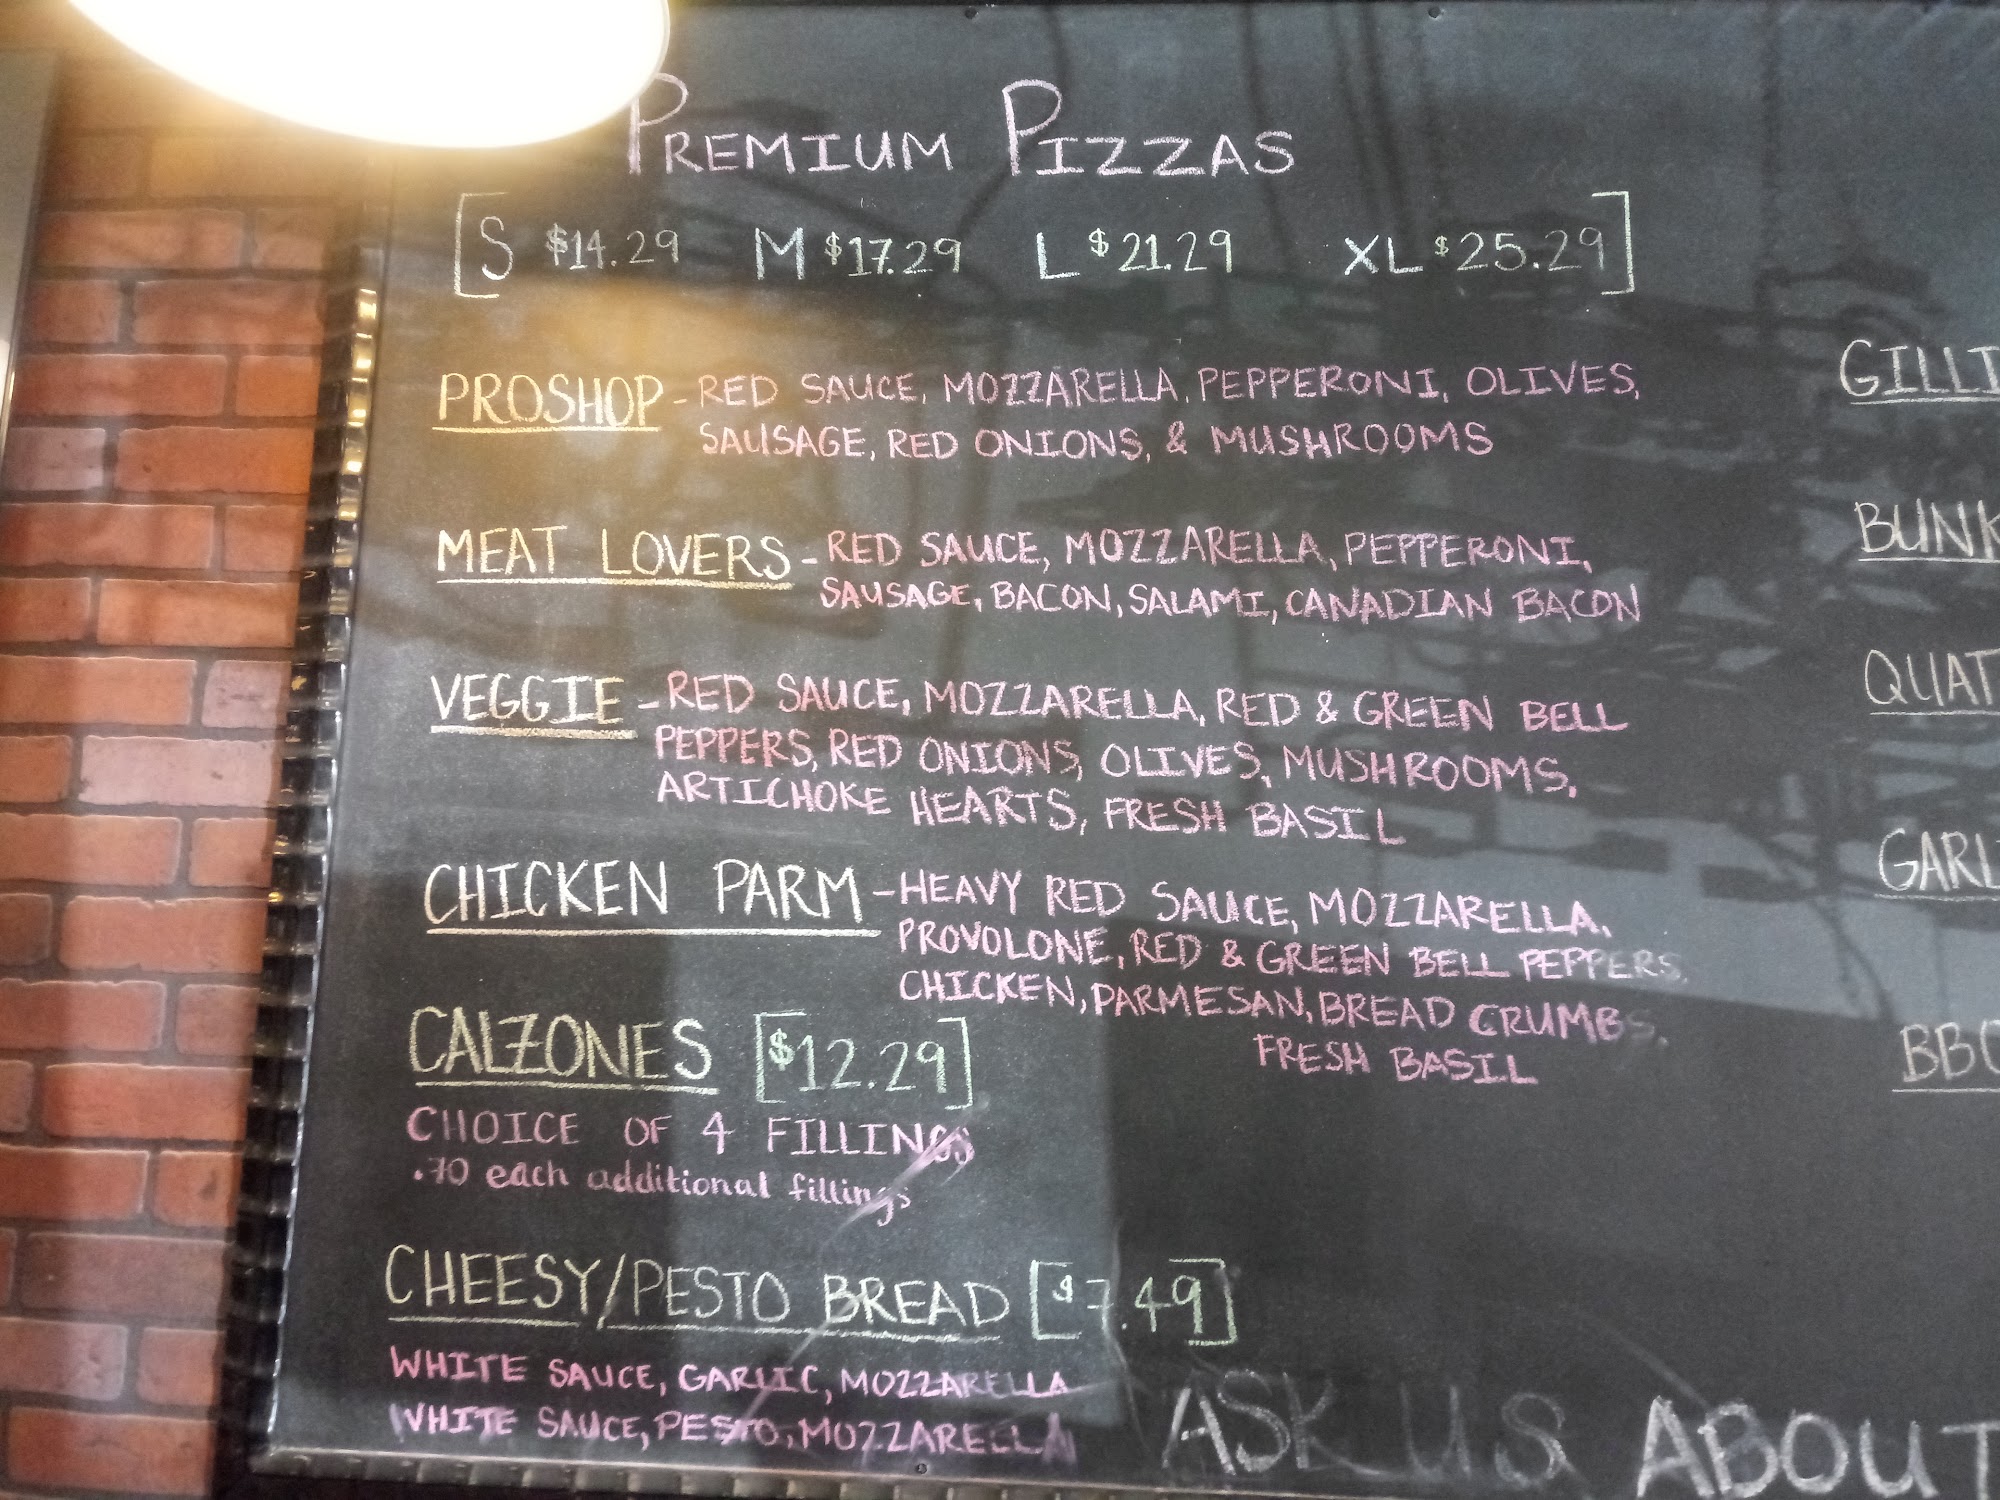 PREMIUM PIZZAS
[S $14.29 M $17.29 L $21.29 XL $25.29]
PROSHOP - RED SAUCE, MOZZARELLA, PEPPERONI, OLIVES,
SAUSAGE, RED ONIONS, & MUSHROOMS
MEAT LOVERS - RED SAUCE, MOZZARELLA, PEPPERONI,
SAUSAGE, BACON, SALAMI, CANADIAN BACON
VEGGIE - RED SAUCE, MOZZARELLA, RED & GREEN BELL
PEPPERS, RED ONIONS, OLIVES, MUSHROOMS,
ARTICHOKE HEARTS, FRESH BASIL
CHICKEN PARM - HEAVY RED SAUCE, MOZZARELLA,
PROVOLONE, RED & GREEN BELL PEPPERS,
CHICKEN, PARMESAN, BREAD CRUMBS,
FRESH BASIL
CALZONES [$12.29]
CHOICE OF 4 FILLINGS
.70 each additional fillings
CHEESY/PESTO BREAD [$7.49]
WHITE SAUCE, GARLIC, MOZZARELLA
WHITE SAUCE, PESTO, MOZZARELLA
GILLI
BUNK
QUAT
GARL
BBQ
ASK US ABOUT